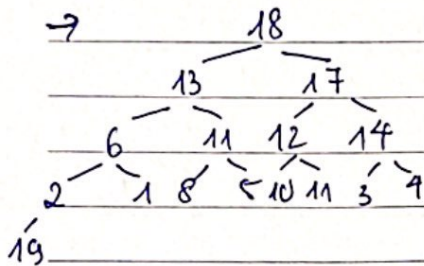 → 18
13 17
6 11 12 14
2 1 8 5 10 11 3 4
19